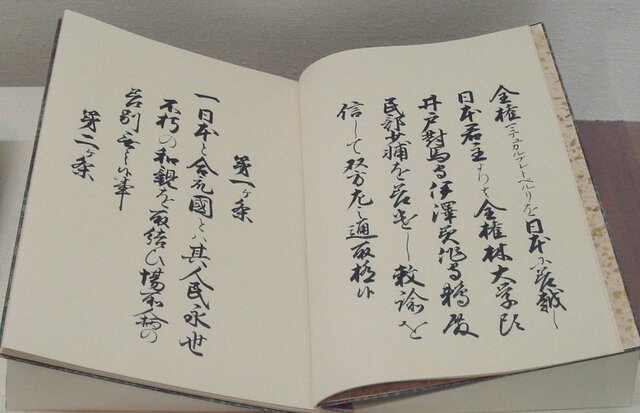 全権マテユカルブレトペルリを日本に差越し
日本君主よりハ全権林大学頭
井戸對馬守伊澤美作守鵜殿
民部少輔を差遣し勅諭を
信して双方左之通取極候
第一ヶ条
一日本と合衆國とハ其人民永世
不朽の和親を取結ひ場所人柄の
差別無之候事
第二ヶ条